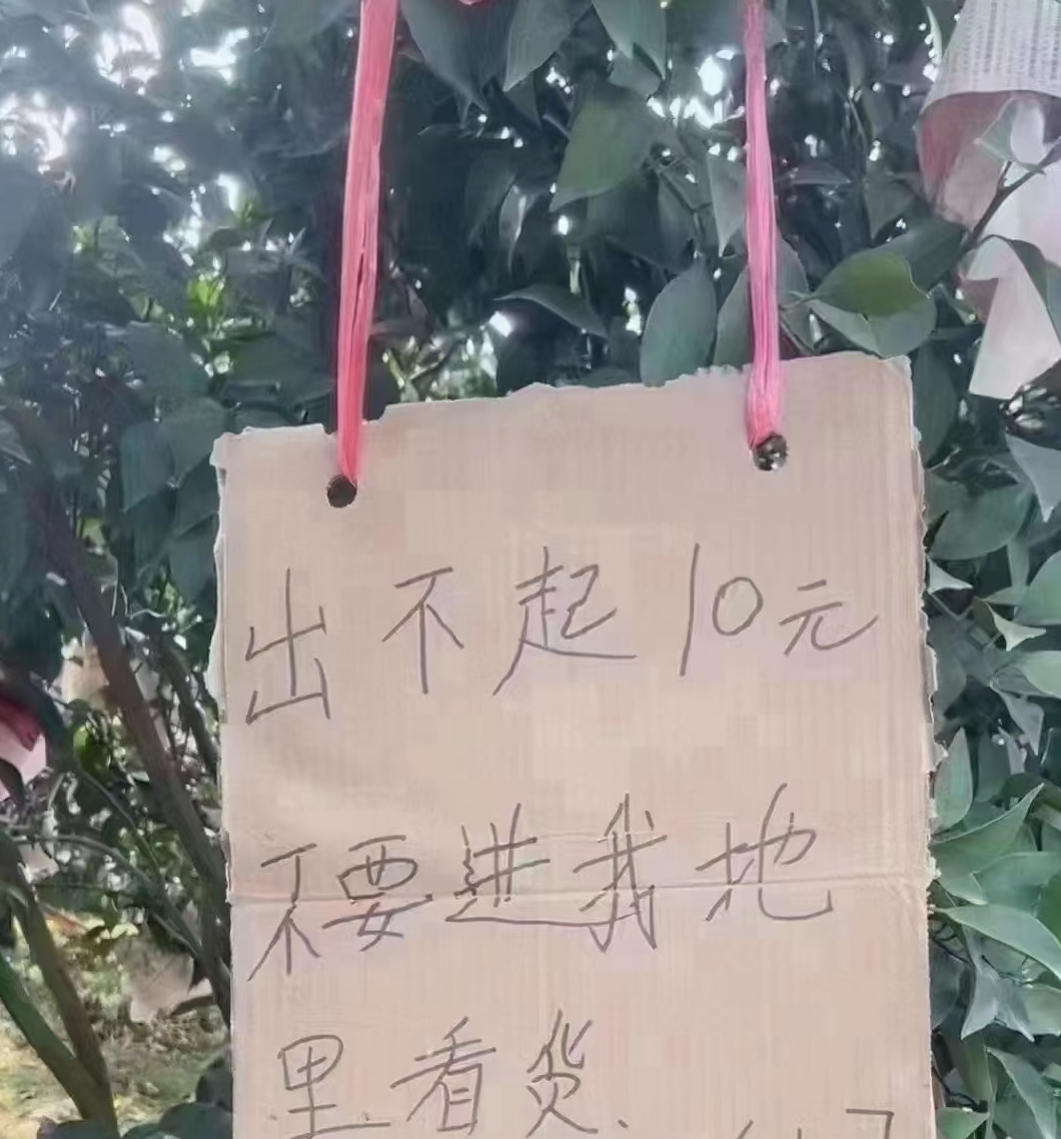 出不起10元
不要进我地
里看货.